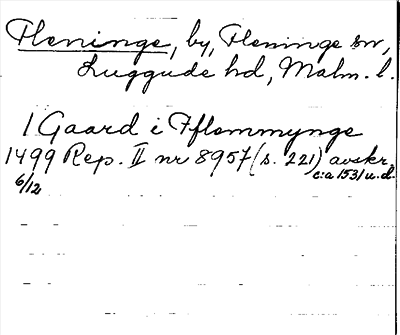 Fleninge, by, Fleninge sn,
Luggude hd, Malm. l.
1 Gaard i Fflemmynge
1499 Rep. II nr 8957 (s. 221) avskr.
6/12 c:a 1531 u.d.